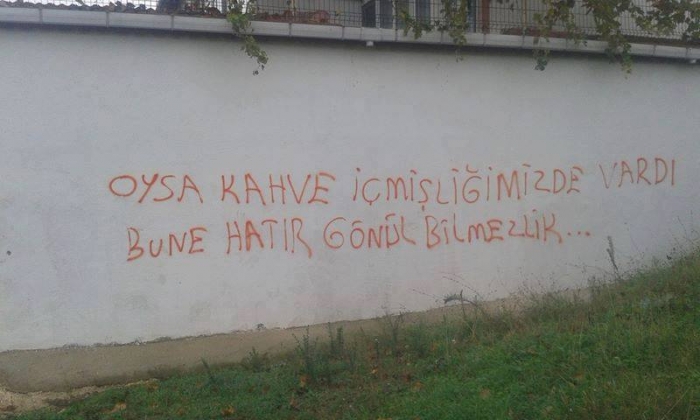 OYSA KAHVE İÇMİŞLİĞİMİZDE VARDI
BUNE HATIR GÖNÜL BİLMEZLİK...